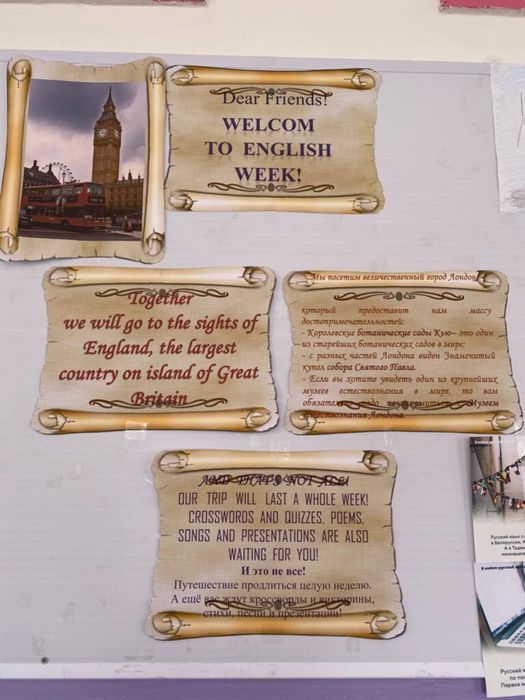 Dear Friends!
WELCOM
TO ENGLISH
WEEK!
Together
we will go to the sights of
England, the largest
country on island of Great
Britain
Мы посетим величественный город Лондон,
который предоставит нам массу
достопримечательностей:
- Королевские ботанические сады Кью– это один
из старейших ботанических садов в мире;
- с разных частей Лондона виден Знаменитый
купол собора Святого Павла.
- Если вы хотите увидеть один из крупнейших
музеев естествознания в мире, то вам
обязательно надо познакомиться с Музеем
естествознания Лондона.
AND THAT'S NOT ALL!
OUR TRIP WILL LAST A WHOLE WEEK!
CROSSWORDS AND QUIZZES, POEMS,
SONGS AND PRESENTATIONS ARE ALSO
WAITING FOR YOU!
И это не все!
Путешествие продлиться целую неделю.
А ещё вас ждут кроссворды и викторины,
стихи, песни и презентации!
Русский язык
в Белоруссии,
А в Тадж
межнацио
Русский я
по по
Первое м